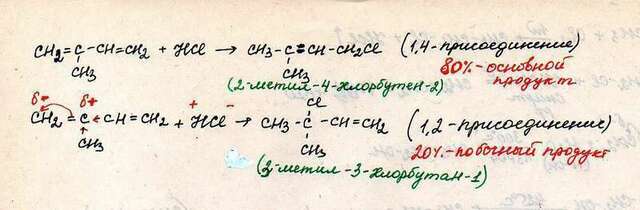 CH₂=C-CH=CH₂ + HCl → CH₃-C=CH-CH₂Cl (1,4-присоединение)
CH₃ CH₃ 80%-основной
(2-метил-4-хлорбутен-2) продукт
δ- δ+ + - Cl
CH₂=C-CH=CH₂ + HCl → CH₃-C-CH=CH₂ (1,2-присоединение)
CH₃ CH₃ 20%-побочный продукт
(2-метил-3-хлорбутан-1)